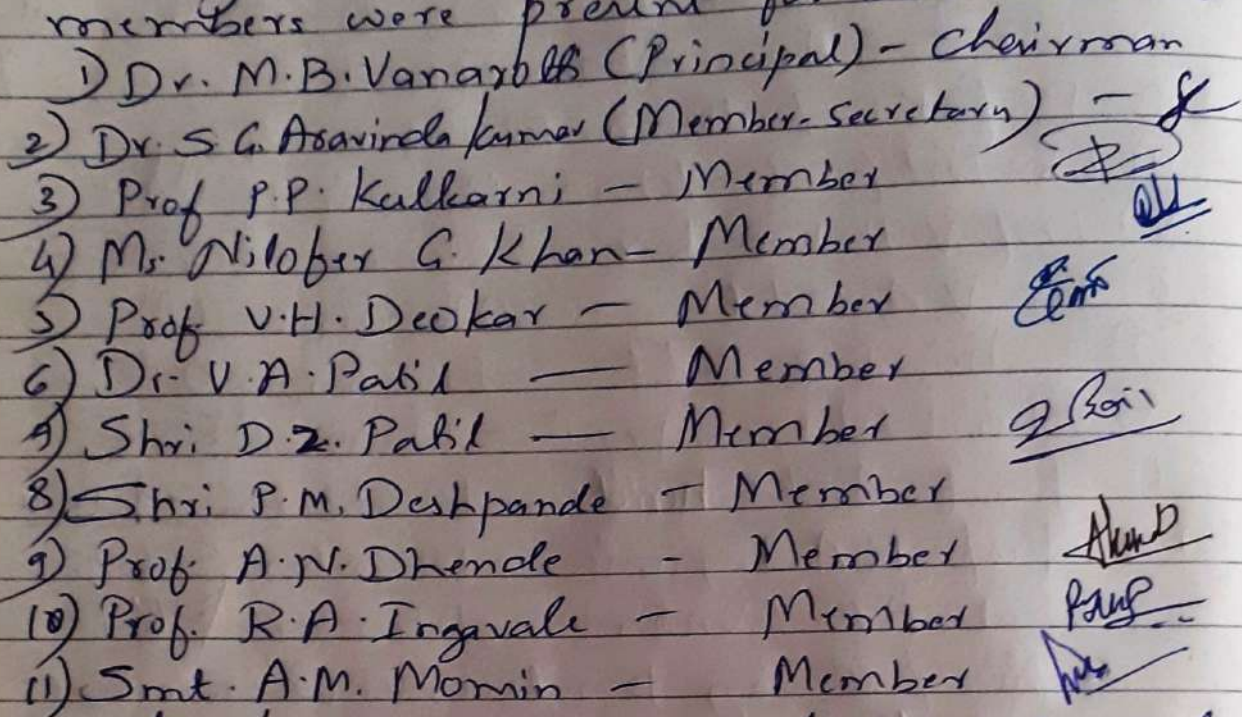 members were present
1) Dr. M.B. Vanarotti (Principal) - Chairman
2) Dr. S. G. Aravinda Kumar (Member-Secretary) -
3) Prof P.P. Kulkarni - Member
4) Ms. Nilofer G. Khan - Member
5) Prof. V.H. Deokar - Member
6) Dr. V.A. Patil — Member
7) Shri D.Z. Patil — Member
8) Shri P.M. Deshpande - Member
9) Prof. A.N. Dhende - Member
10) Prof. R.A. Ingavale - Member
11) Smt. A.M. Momin - Member